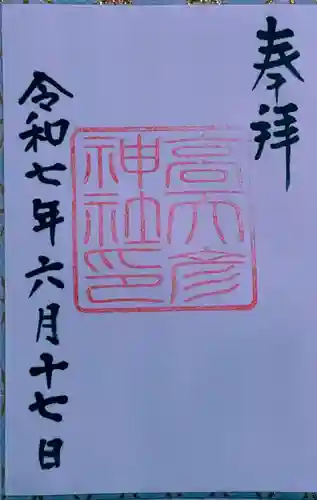 奉拝
高天彦
神社印
令和七年六月十七日